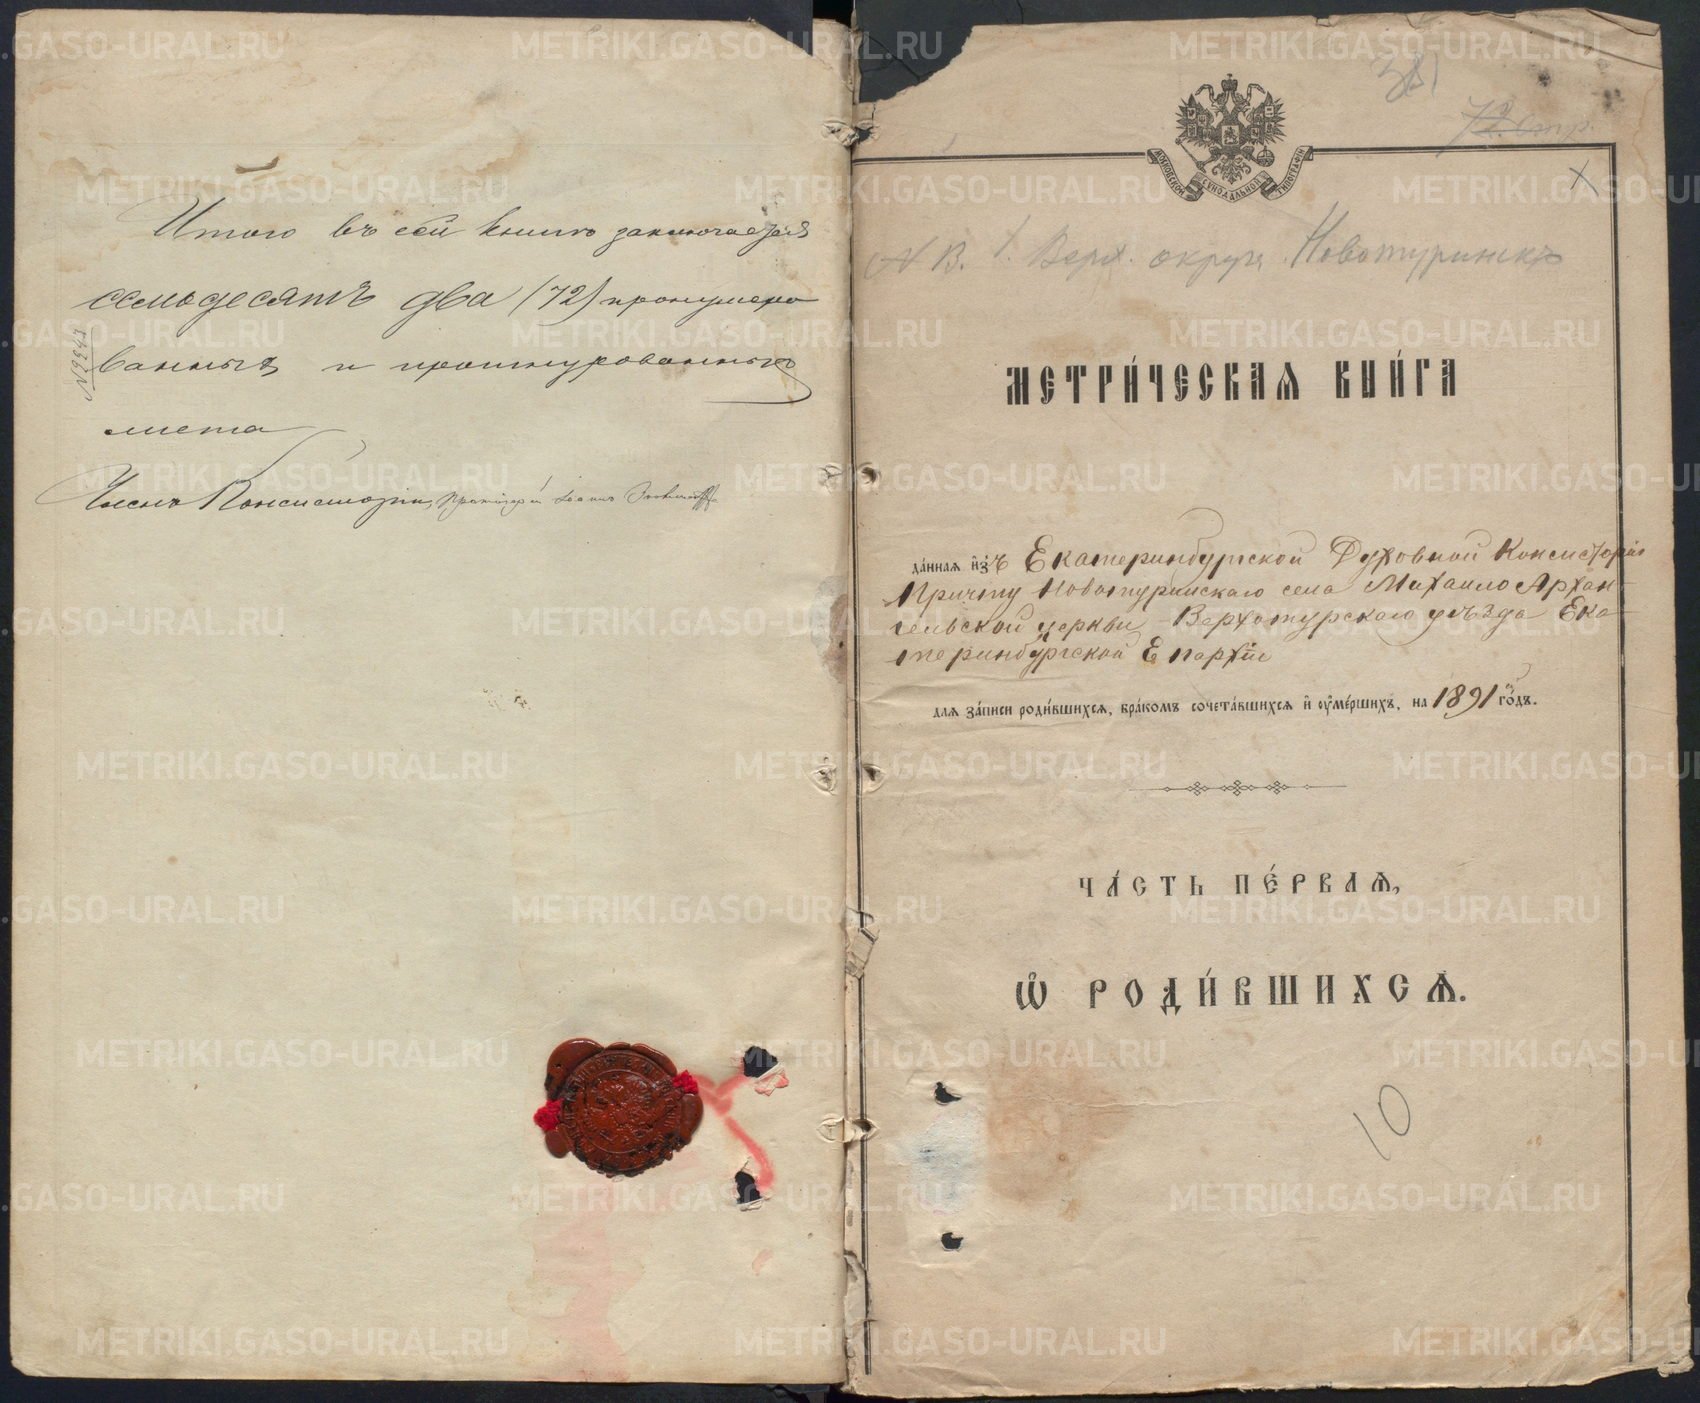 Итого въ сей книгѣ заключается
семьдесятъ два (72) пронумеро
ванныхъ и прошнурованныхъ
листа
Членъ Консисторіи, Протоіерей Іоаннъ
№9343
381
72 стр.
МОСКОВСКОЙ СѴНОДАЛЬНОЙ ТИПОГРАФІИ
А В. 1. Верх. округа Новотуринскъ
МЕТРИ́ЧЕСКАѦ КНИ́ГА
да́ннаѧ и҆зъ Екатеринбургской Духовной Консисторіи
Причту Новотуринскаго села Михаило Архан
гельской церкви Верхотурскаго уѣзда Ека
теринбургской Епархіи
длѧ за́писи роди́вшихсѧ, бра́комъ сочета́вшихсѧ и҆ оу҆ме́ршихъ, на 1891 го́дъ.
ЧА́СТЬ ПЕ́РВАѦ,
Ѡ҆ РОДИ́ВШИХСѦ.
10
METRIKI.GASO-URAL.RU